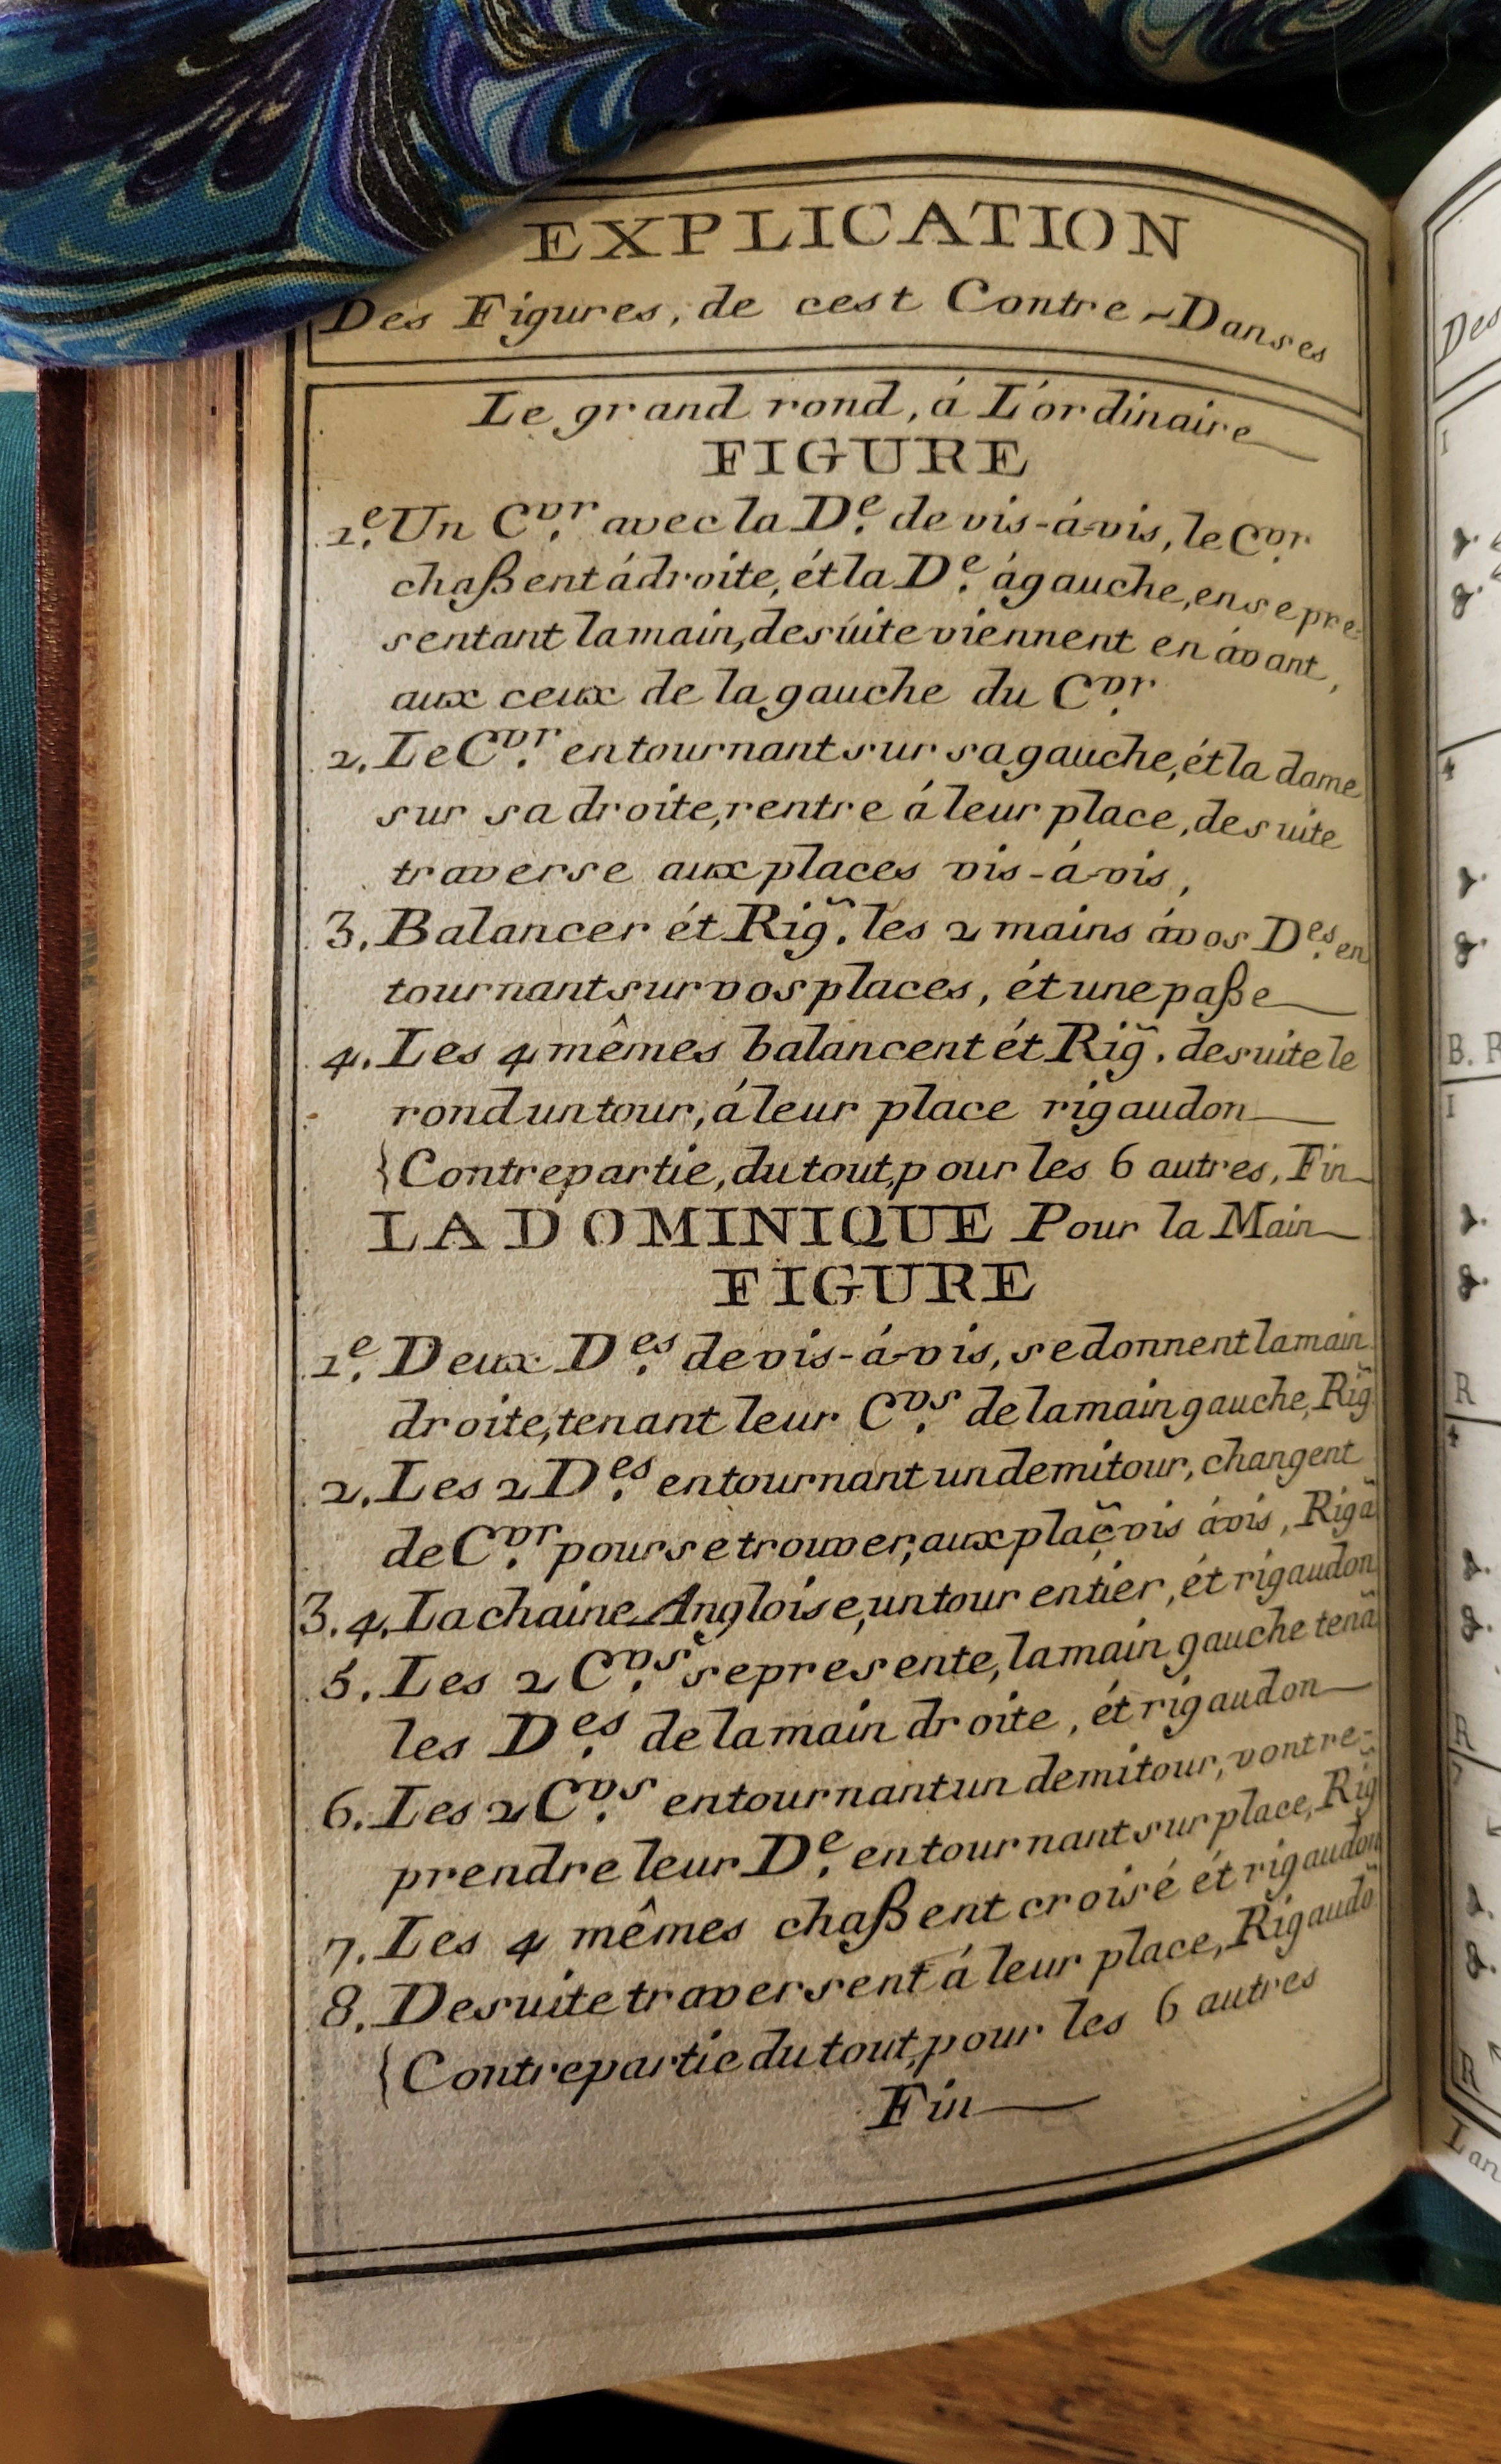 EXPLICATION
Des Figures, de cest Contre-Danses
Le grand rond, á L'ordinaire
FIGURE
1.e Un C.vr avec la D.e de vis-á-vis, le C.vr
chaßent á droite, ét la D.e á gauche, en se pre-
sentant la main, desuite viennent en ávant,
aux ceux de la gauche du C.vr
2. Le C.vr en tournant sur sa gauche, ét la dame
sur sa droite, rentre á leur place, desuite
traverse aux places vis-á-vis,
3. Balancer ét Rig̃. les 2 mains á vos D.es en
tournant sur vos places, ét une paße
4. Les 4 mêmes balancent ét Rig̃. desuite le
rond un tour, á leur place rigaudon
{Contrepartie, du tout, pour les 6 autres, Fin
LA DOMINIQUE Pour la Main
FIGURE
1.e Deux D.es de vis-á-vis, se donnent la main
droite, tenant leur C.vs de la main gauche, Rig̃
2. Les 2 D.es en tournant un demi tour, changent
de C.vr pour se trouver, aux plac̃ vis á vis, Rigã
3. 4. La chaine Angloise, un tour entier, ét rigaudon
5. Les 2 C.vs se presente, la main gauche tenã
les D.es de la main droite, ét rigaudon
6. Les 2 C.vs en tournant un demi tour, vont re-
prendre leur D.e en tournant sur place, Rig̃
7. Les 4 mêmes chaßent croisé ét rigaudon
8. Desuite traversent á leur place, Rigaudõ
{Contrepartie du tout, pour les 6 autres
Fin
Des
1
4
B. R
1
R
4
R
R
Lan